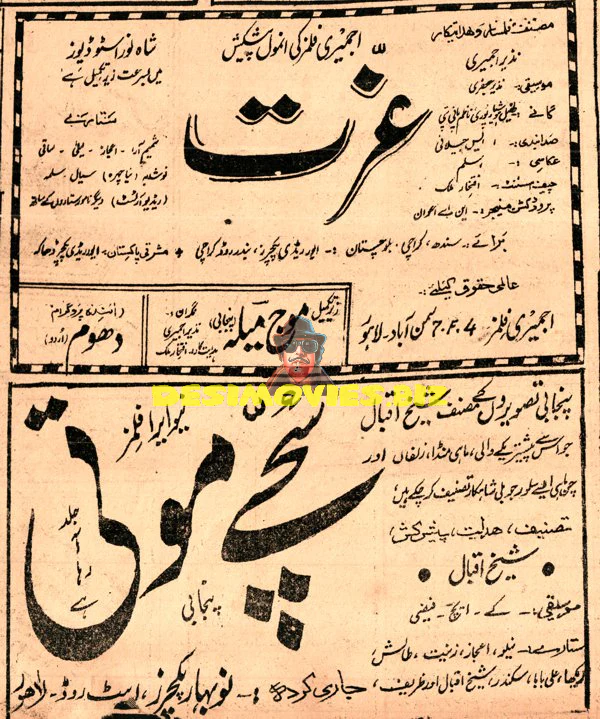 مصنف فلمساز و ہدایتکار
نذیر اجمیری
موسیقی:- نذر جعفری
صدابندی:- انیس جیلانی
عکاسی :- اسلم
چیف اسسٹنٹ:- افتخار ملک
پروڈکشن منیجر:- این اے اعوان
اجمیری فلمز کی انمول پیشکش
عزّت
شاہ نور اسٹوڈیوز
میں بسرعت زیر تکمیل ہے
ستارے
شمیم آرا - اعجاز - لیلیٰ - ساقی
نوشابہ (نیا چہرہ) سیال سلمہ
(ریڈیو آرٹسٹ) دیگر نامور ستاروں کے ساتھ
برائے:- سندھ، کراچی، بلوچستان :- ایور ریڈی پکچرز، بندر روڈ کراچی • مشرقی پاکستان - ایور ریڈی پکچرز ڈھاکہ
عالمی حقوق کیلئے:-
اجمیری فلمز 7.F.4 سمن آباد - لاہور
زیر تکمیل
موج میلہ
(پنجابی)
نگران:-
نذیر اجمیری
ہدایتکار، افتخار ملک
آئندہ پروگرام
دھوم
(اُردو)
DESIMOVIES.BIZ
پنجابی تصویروں کے مصنف شیخ اقبال
جو اس سے پیشتر یکے والی، ماہی منڈا، زلفاں اور
ایسے سلور جوبلی شاہکار تصنیف کر چکے ہیں
تصنیف، ہدایت، پیشکش
• شیخ اقبال •
موسیقی:- کے - ایچ - فیضی
ستارے:- نیلو، اعجاز، زینت، طالش
رکھا، علی بابا، سکندر، شیخ اقبال اور ظریف
نیو ایرا فلمز
سچّے موتی
پنجابی
جلد
آ
رہا
ہے
جاری کردہ :- نو بہار پکچرز، ایبٹ روڈ - لاہور